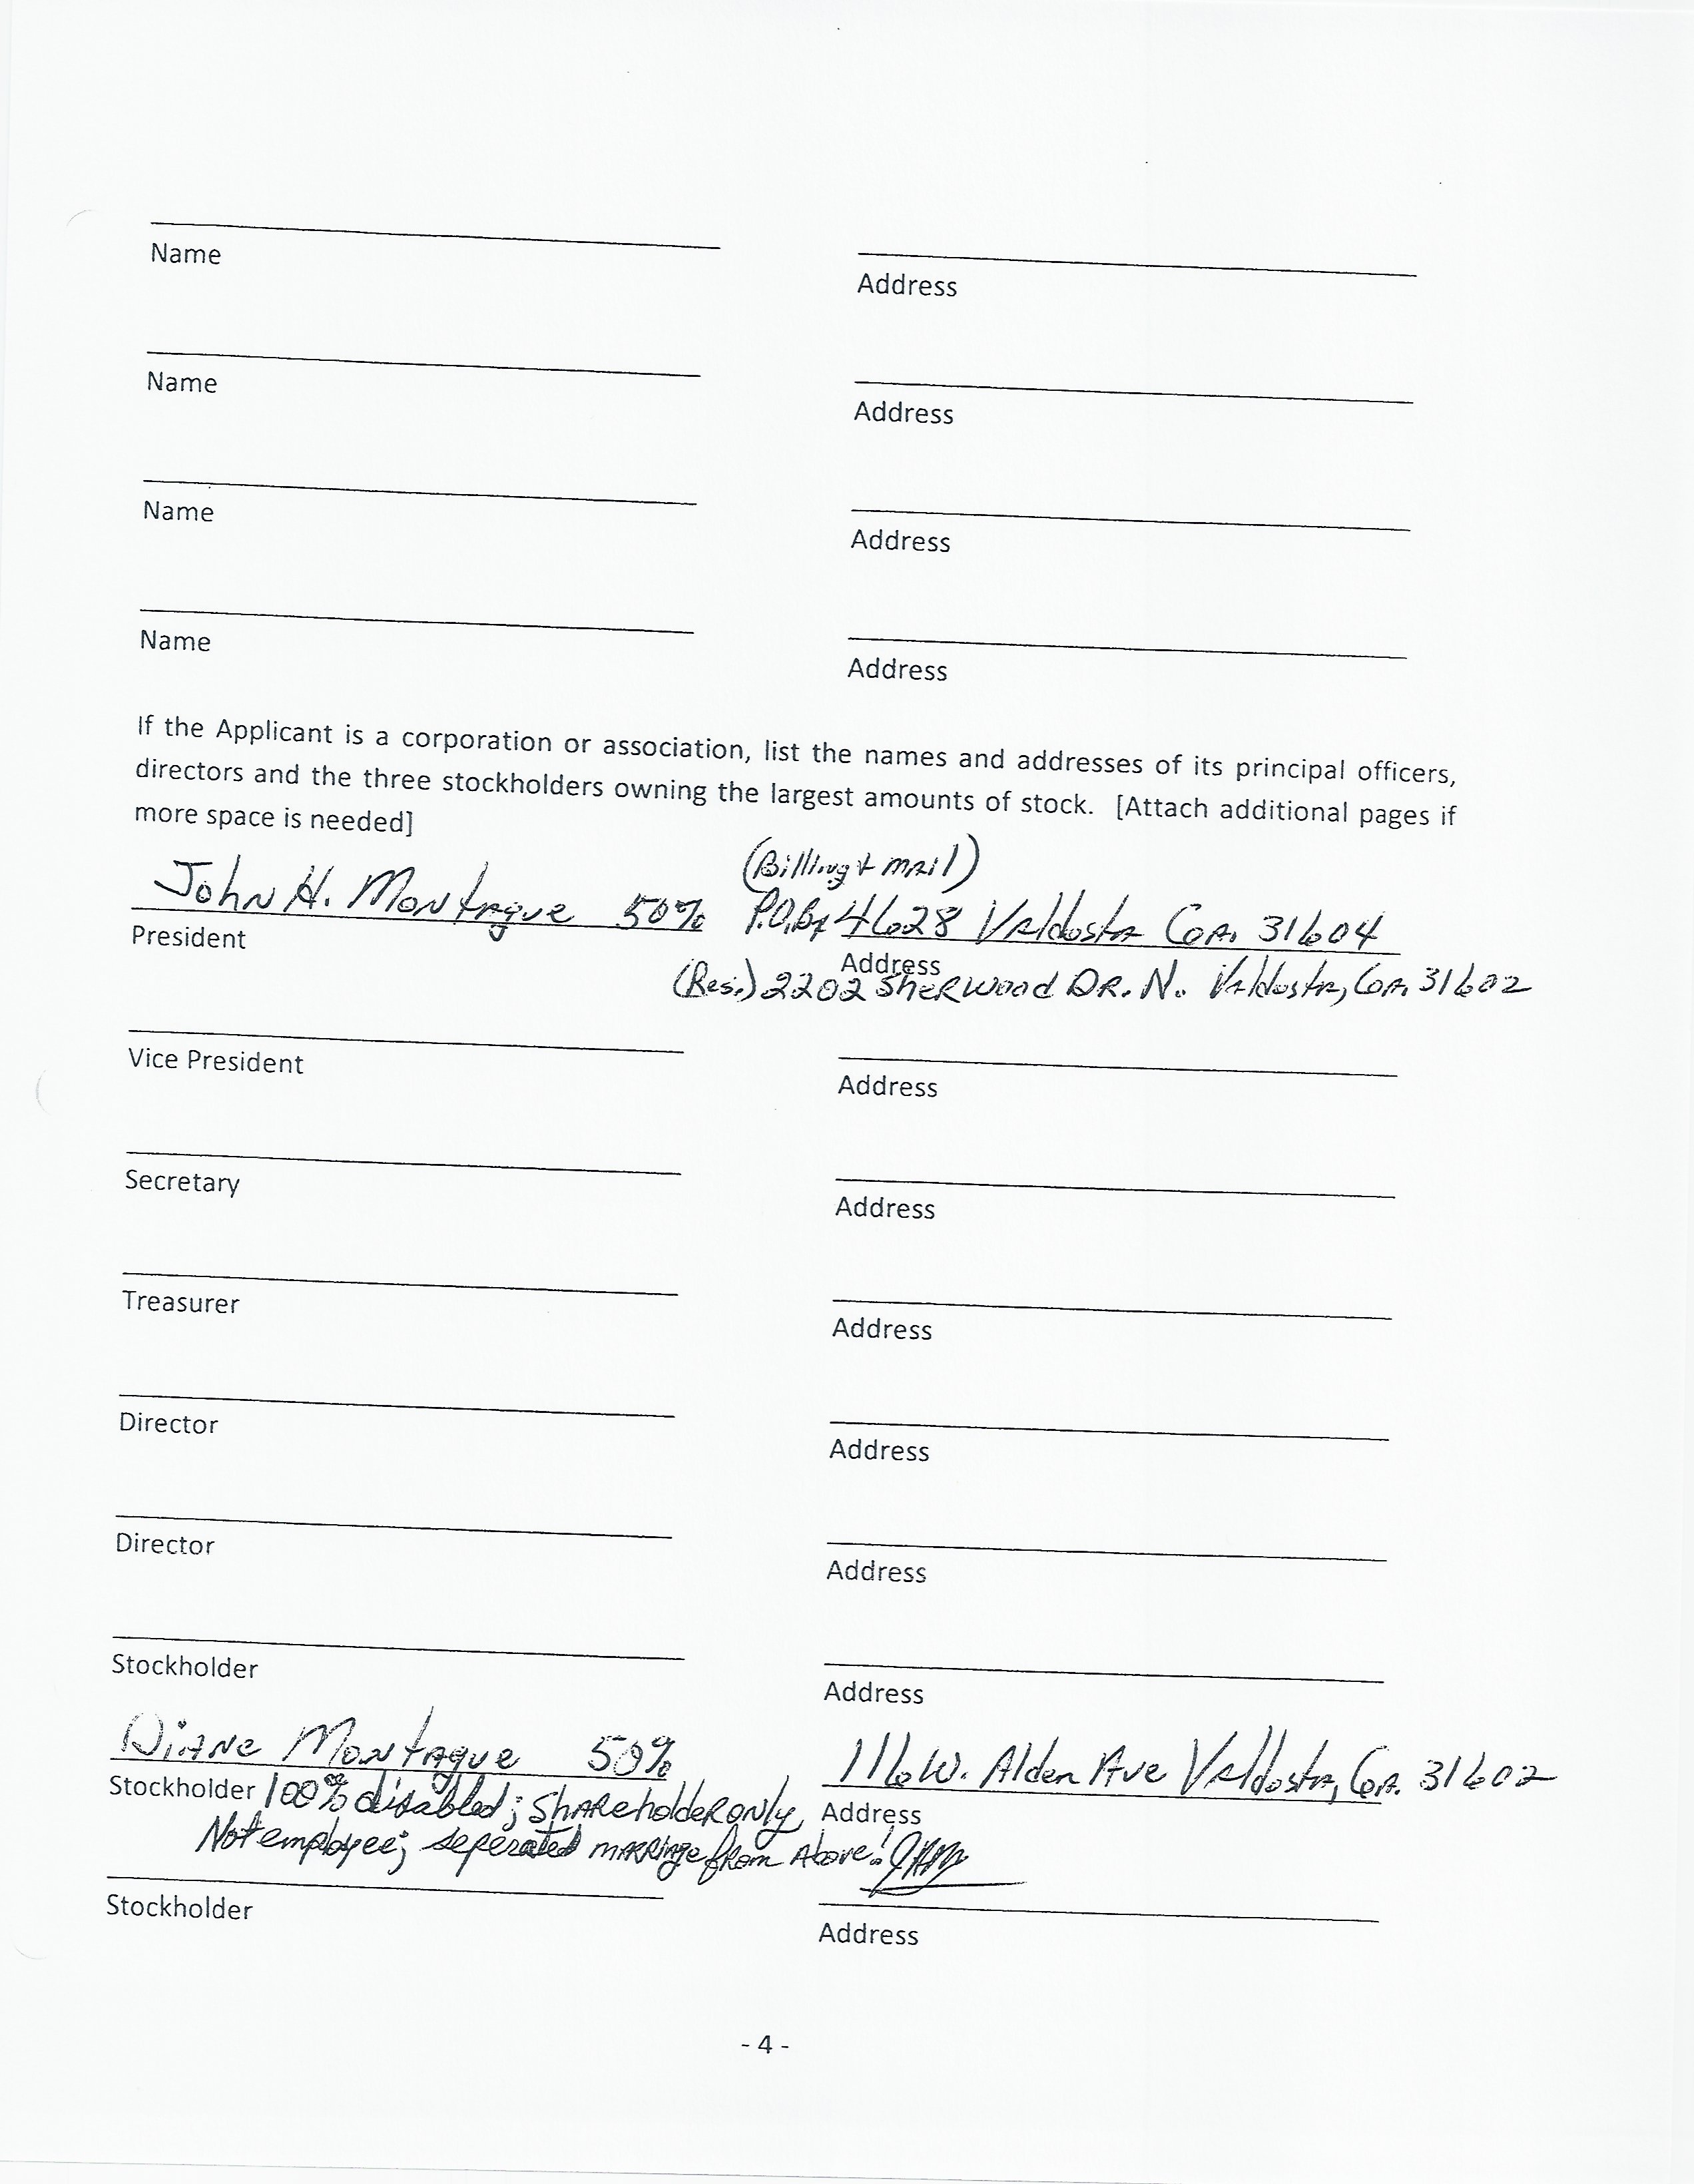 Name
Address
Name
Address
Name
Address
Name
Address
If the Applicant is a corporation or association, list the names and addresses of its principal officers,
directors and the three stockholders owning the largest amounts of stock. [Attach additional pages if
more space is needed]
(Billing & mail)
John H. Montague 50% P.O. Bx 4628 Valdosta Ga. 31604
President
Address
(Res.) 2202 Sherwood Dr. N. Valdosta, Ga. 31602
Vice President
Address
Secretary
Address
Treasurer
Address
Director
Address
Director
Address
Stockholder
Address
Diane Montague 50% 116 W. Alden Ave Valdosta, Ga. 31602
Stockholder 100% disabled; shareholder only, Address
Not employee; seperated marriage from Above! JHM
Stockholder
Address
- 4 -